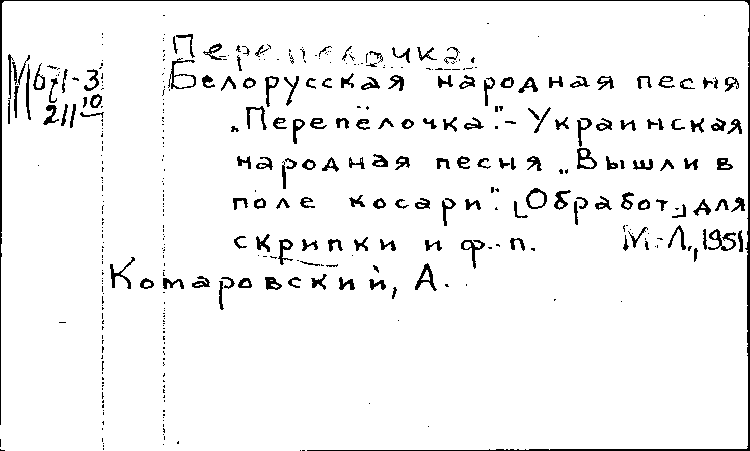 Перепелочка.
М 671-3
211 10
Белорусская народная песня
„Перепёлочка". - Украинская
народная песня „Вышли в
поле косари". [Обработ.] для
скрипки и ф.-п. М.-Л., 1951.
Комаровский, А.